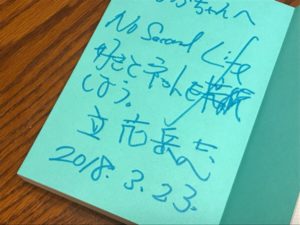 ちゃんへ
No Second Life
好きとネットを
しよう。
立花岳志
2018.3.23.